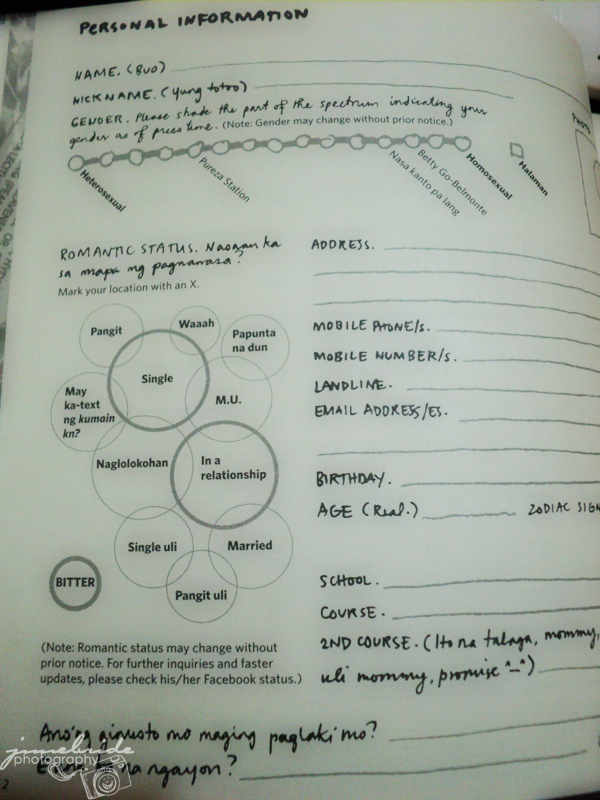 PERSONAL INFORMATION
NAME. (BUO)
NICKNAME. (yung totoo)
GENDER. Please shade the part of the spectrum indicating your
gender as of press time. (Note: Gender may change without prior notice.)
Heterosexual
Pureza Station
Nasa kanto pa lang
Betty Go-Belmonte
Homosexual
Halaman
PHOTO
ROMANTIC STATUS. Nasaan ka
sa mapa ng pagnanasa?
Mark your location with an X.
Pangit
Waaah
Papunta
na dun
Single
May
ka-text
ng kumain
kn?
M.U.
Naglolokohan
In a
relationship
Single uli
Married
Pangit uli
BITTER
(Note: Romantic status may change without
prior notice. For further inquiries and faster
updates, please check his/her Facebook status.)
ADDRESS.
MOBILE PHONE/S.
MOBILE NUMBER/S.
LANDLINE.
EMAIL ADDRESS/ES.
BIRTHDAY.
AGE (Real.) ZODIAC SIGN
SCHOOL.
COURSE.
2ND COURSE. (Ito na talaga, mommy,
uli mommy, promise ^_^)
Ano'ng ginusto mo maging paglaki mo?
na ngayon?
photography
2